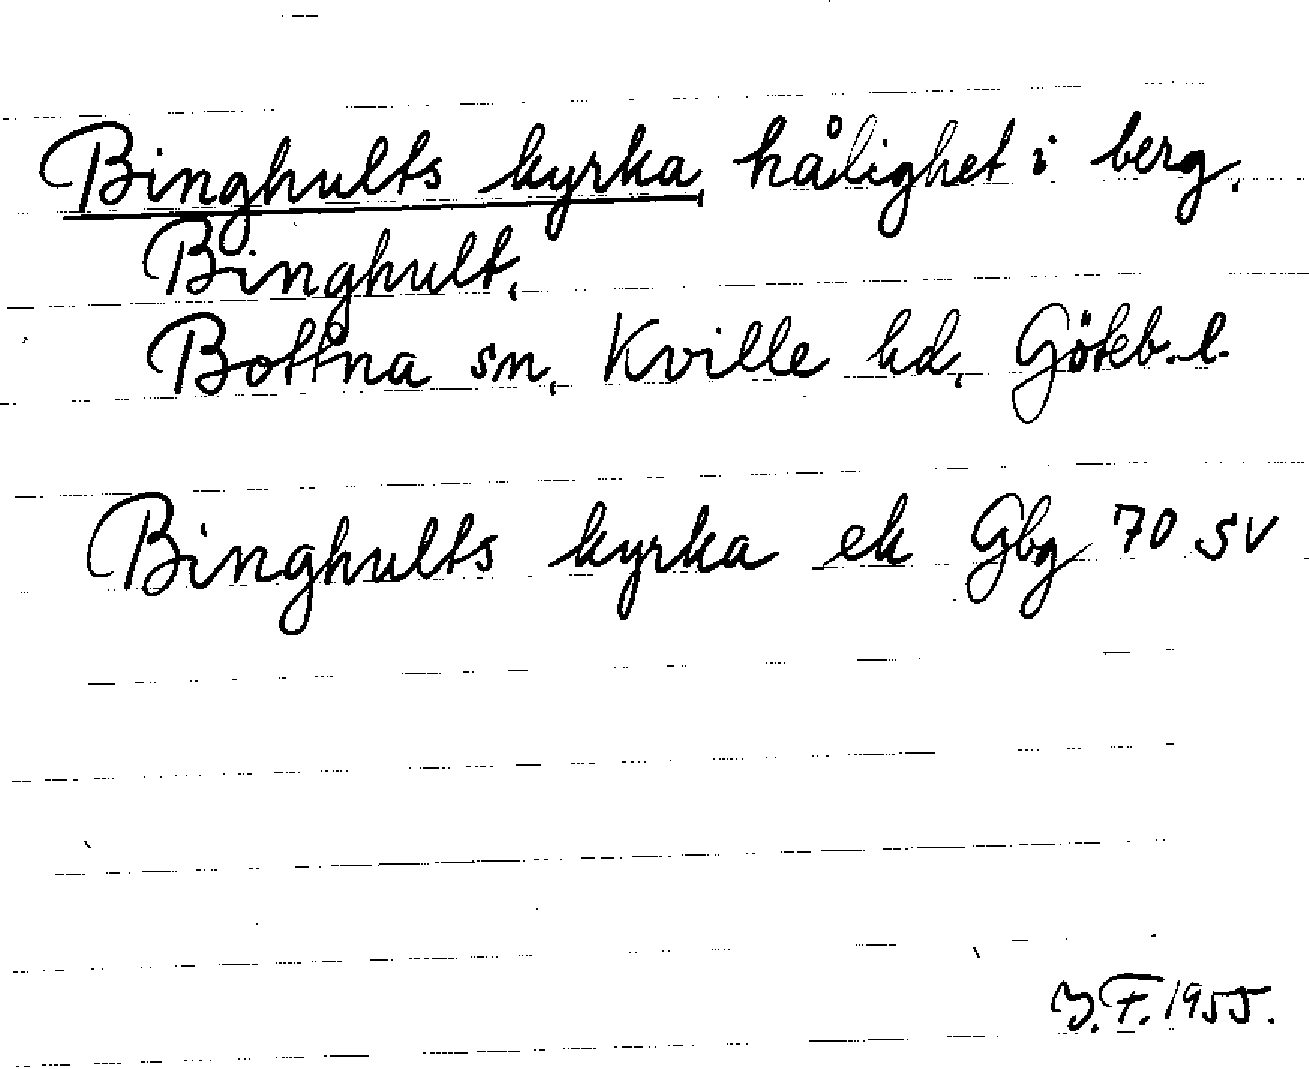 Binghults kyrka, hålighet i berg.
Binghult,
Bottna sn, Kville hd, Göteb. l.
Binghults kyrka ek Gbg 70 SV
Y.F. 1955.